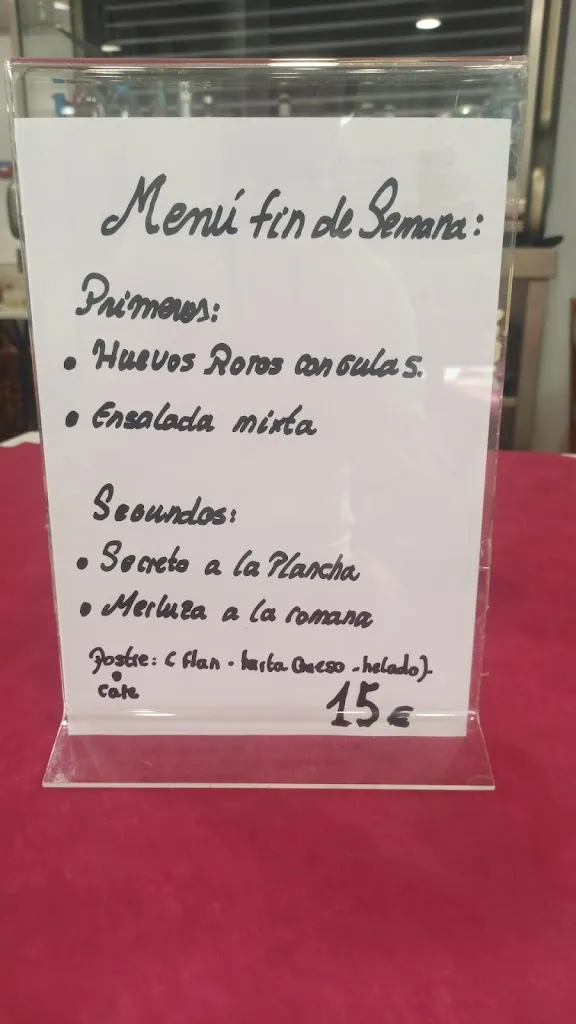 Menú fin de Semana:
Primeros:
• Huevos Rotos con Gulas.
• Ensalada mixta
Segundos:
• Secreto a la Plancha
• Merluza a la romana
Postre: ( Flan - tarta Queso - helado).
o
cafe
15 €